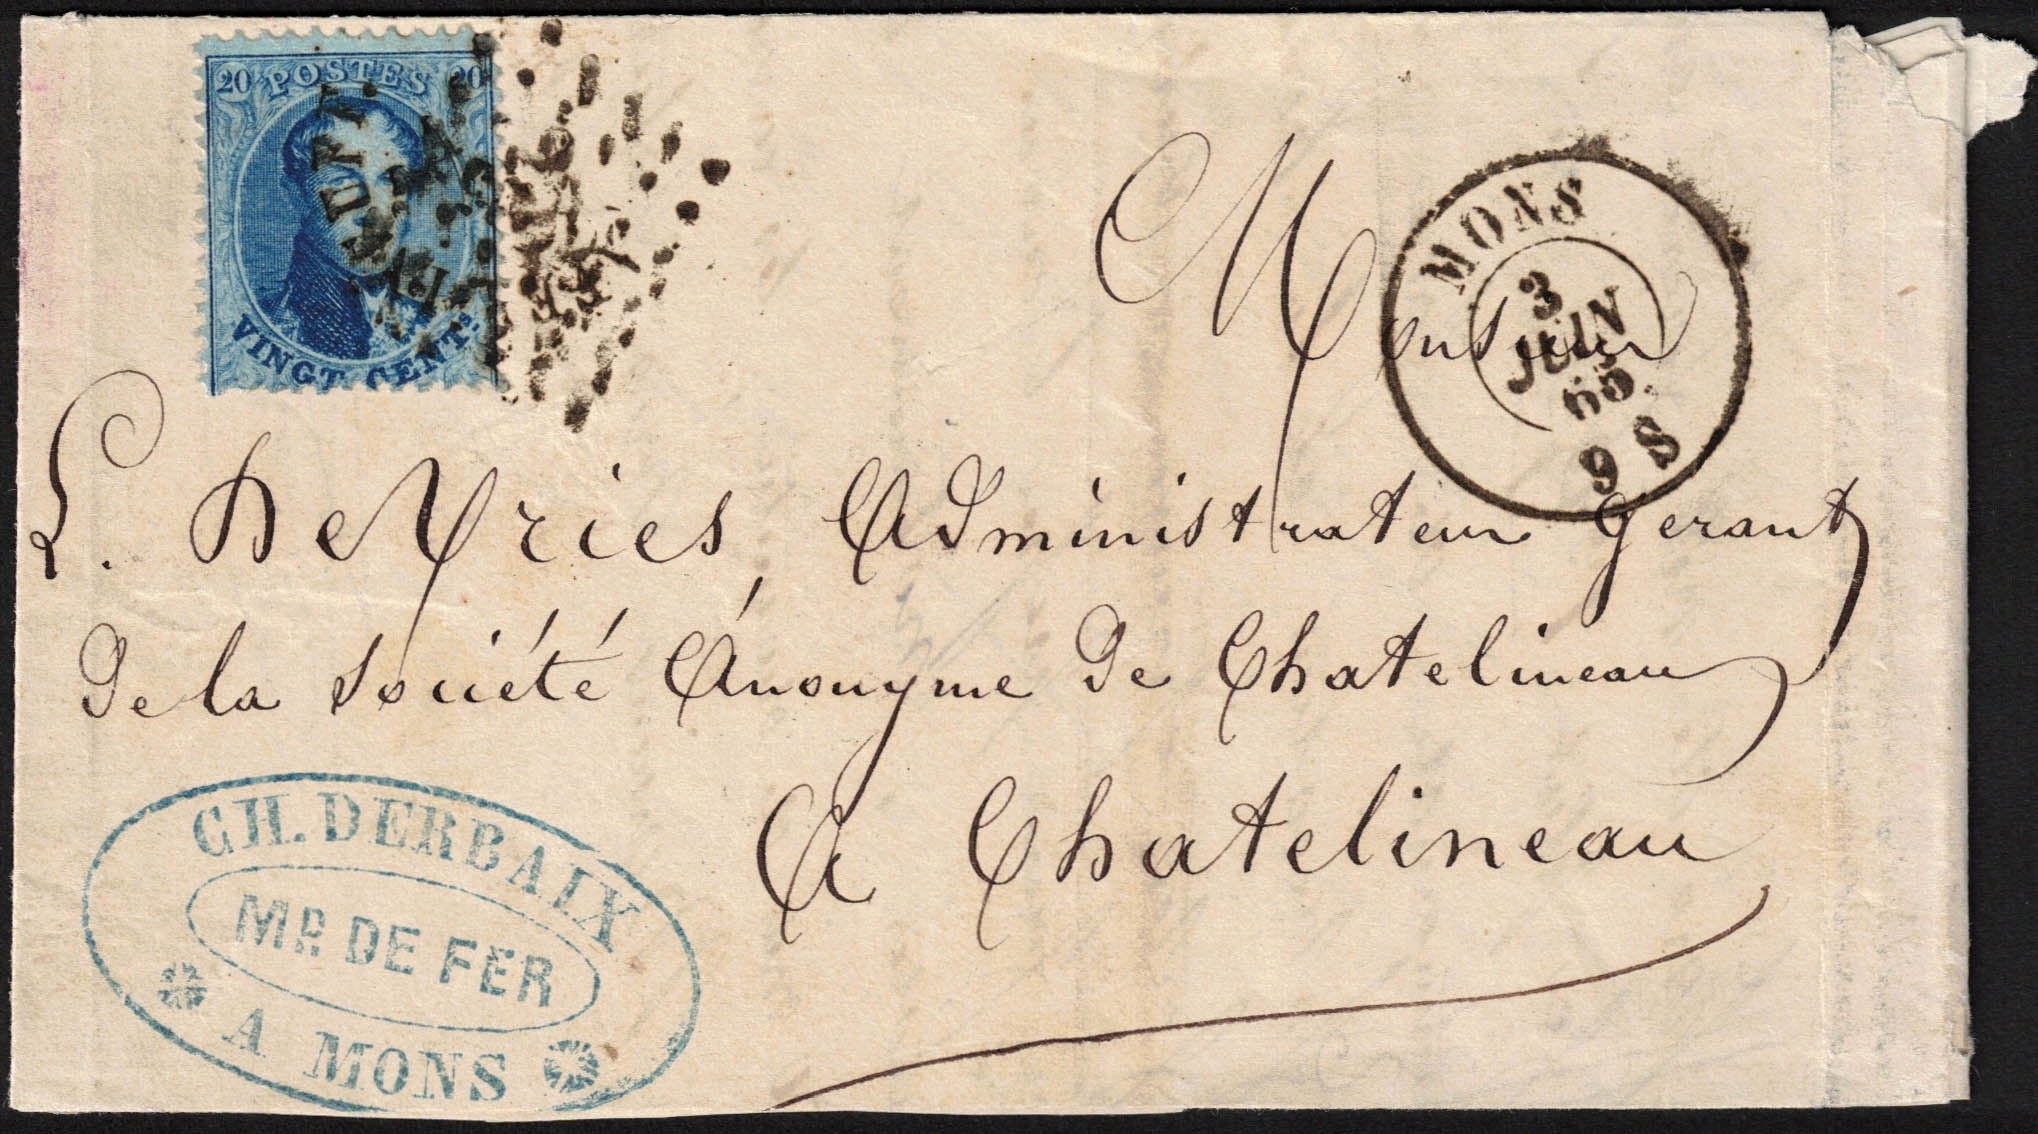 20 POSTES 20
VINGT CENTS.
MONS
3
JUIN
65
9 S
Monsieur
L. DeVries, Administrateur Gerant
De la Société Anonyme De Chatelineau
A Chatelineau
CH. DERBAIX
MD. DE FER
A MONS